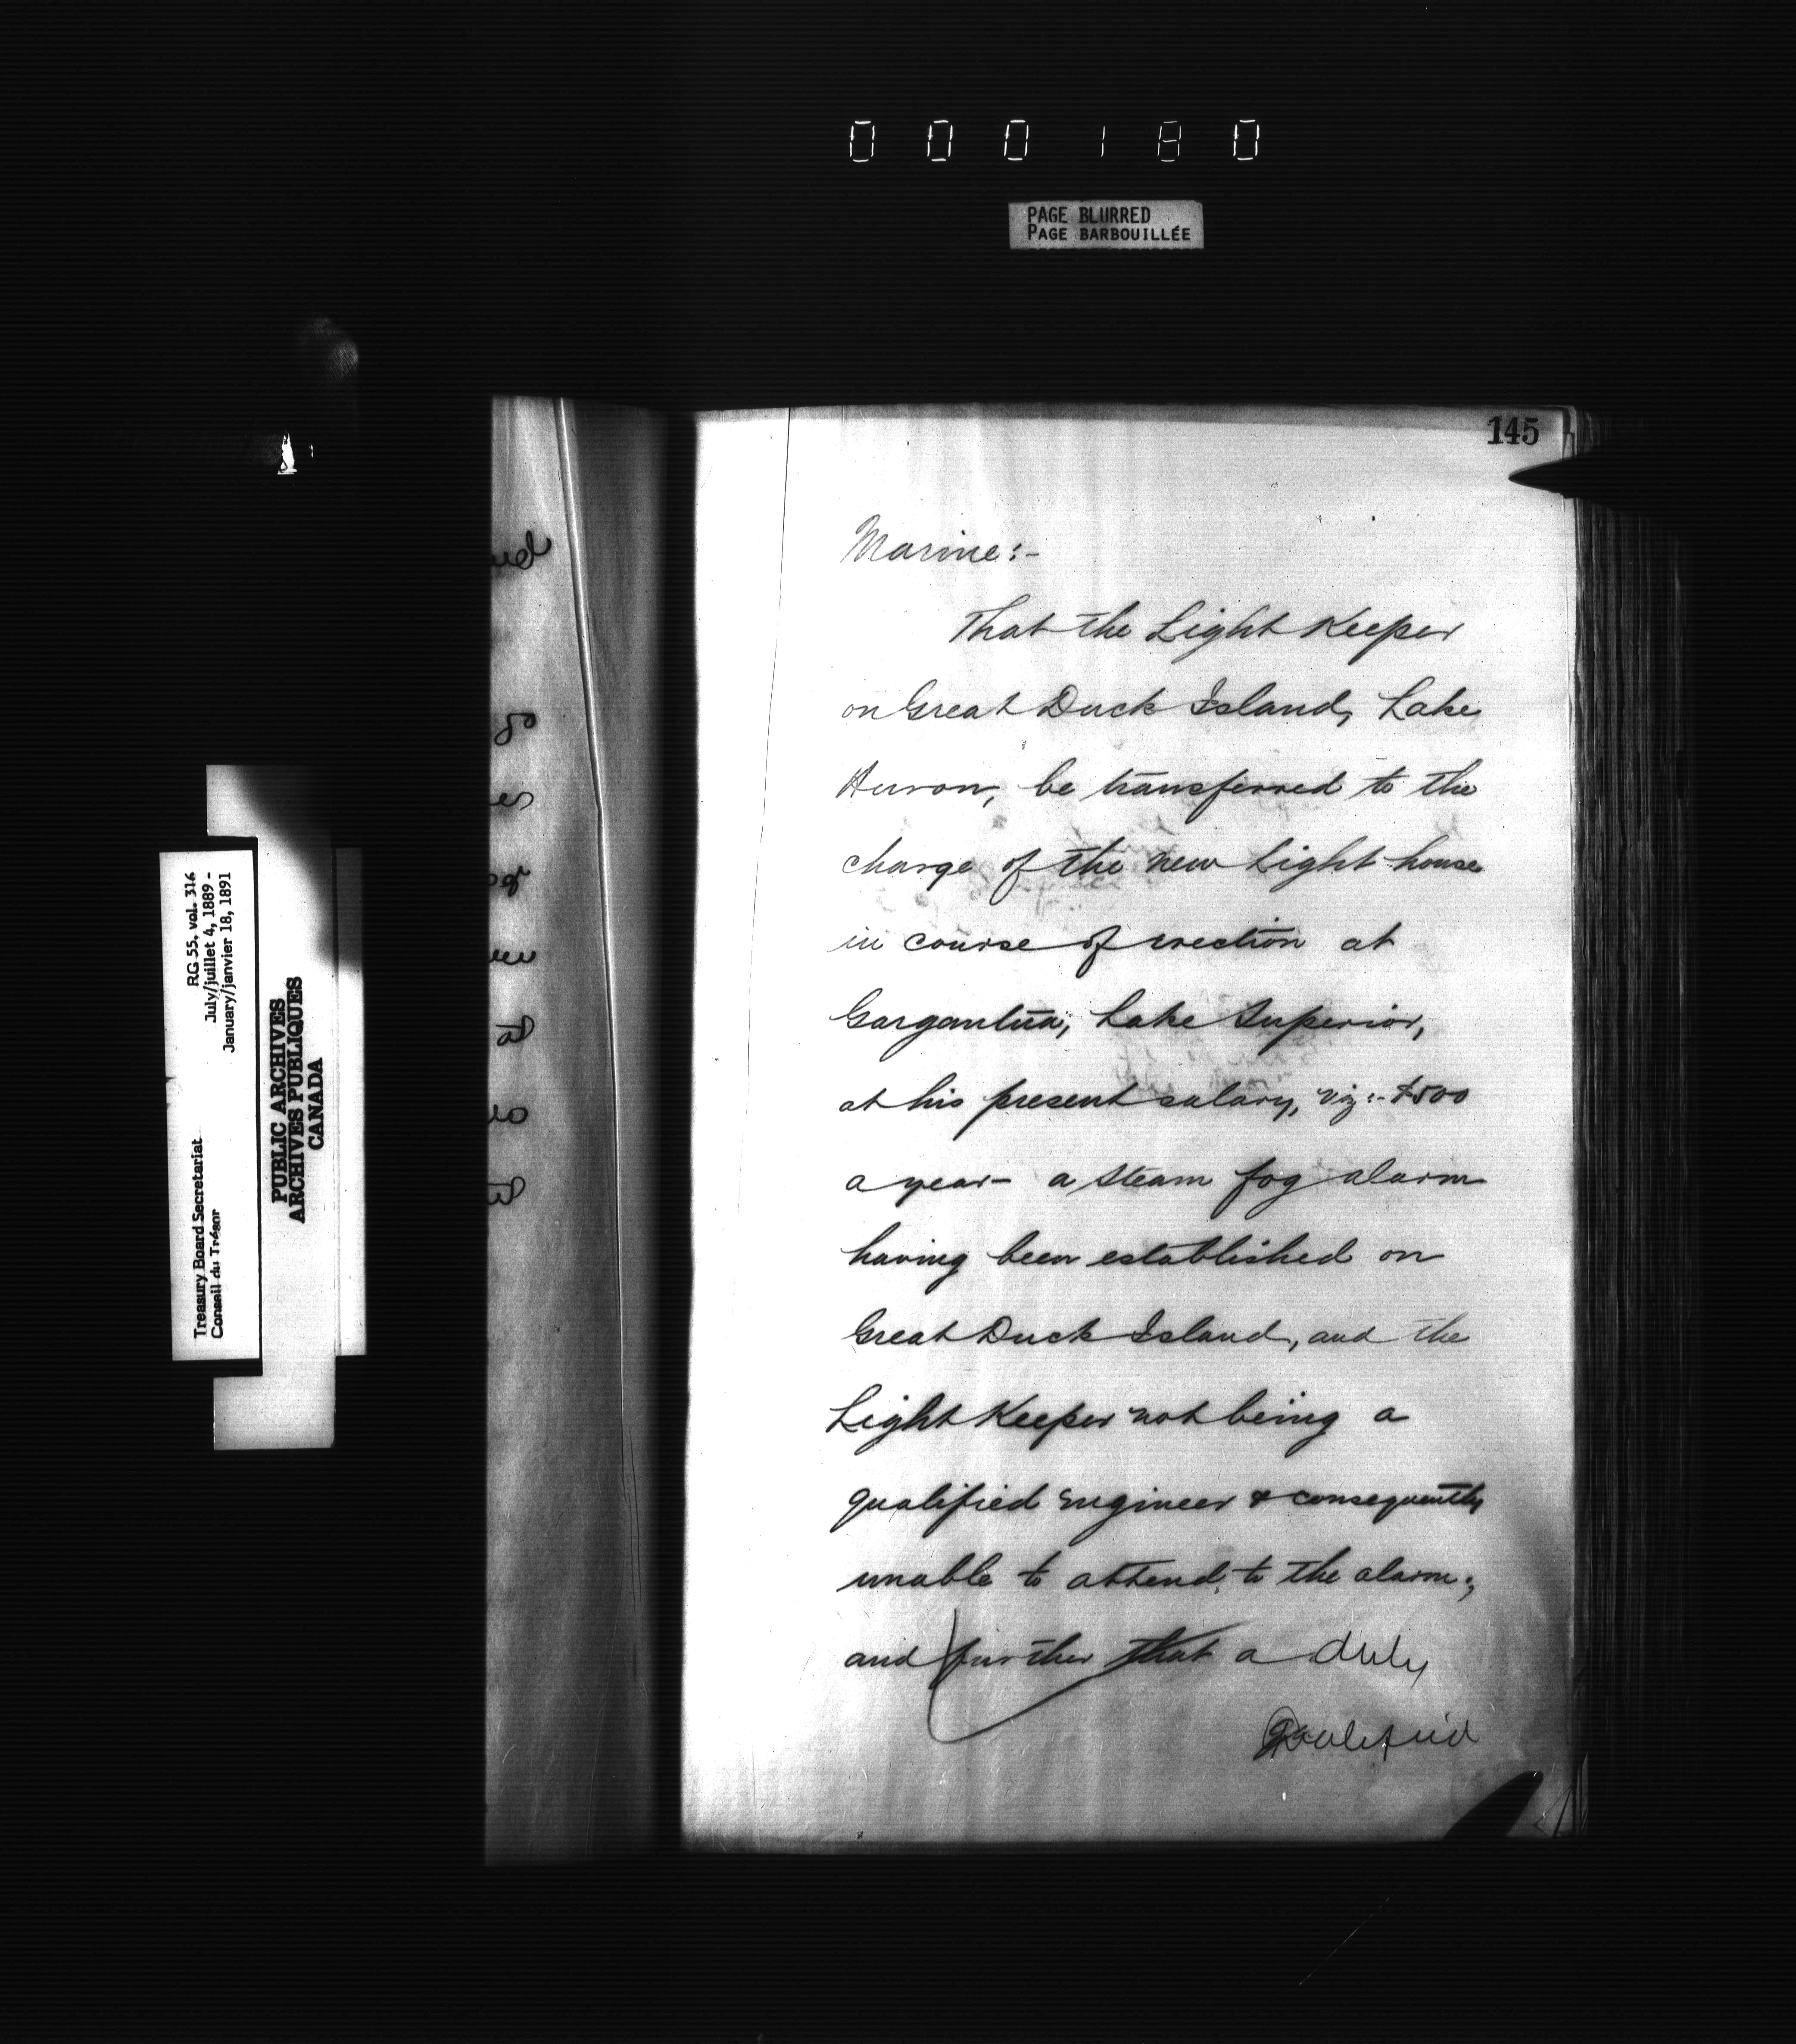 000180
PAGE BLURRED
PAGE BARBOUILLÉE
145
Marine:-
That the Light Keeper
on Great Duck Island, Lake
Huron, be transferred to the
charge of the new Light-house
in course of erection at
Gargantua, Lake Superior,
at his present salary, viz:- $500
a year - a steam fog alarm
having been established on
Great Duck Island, and the
Light Keeper not being a
qualified engineer & consequently
unable to attend to the alarm;
and further that a duly
Qualified
RG 55, vol. 316
July/juillet 4, 1889 -
January/janvier 18, 1891
Treasury Board Secretariat
Conseil du Trésor
PUBLIC ARCHIVES
ARCHIVES PUBLIQUES
CANADA